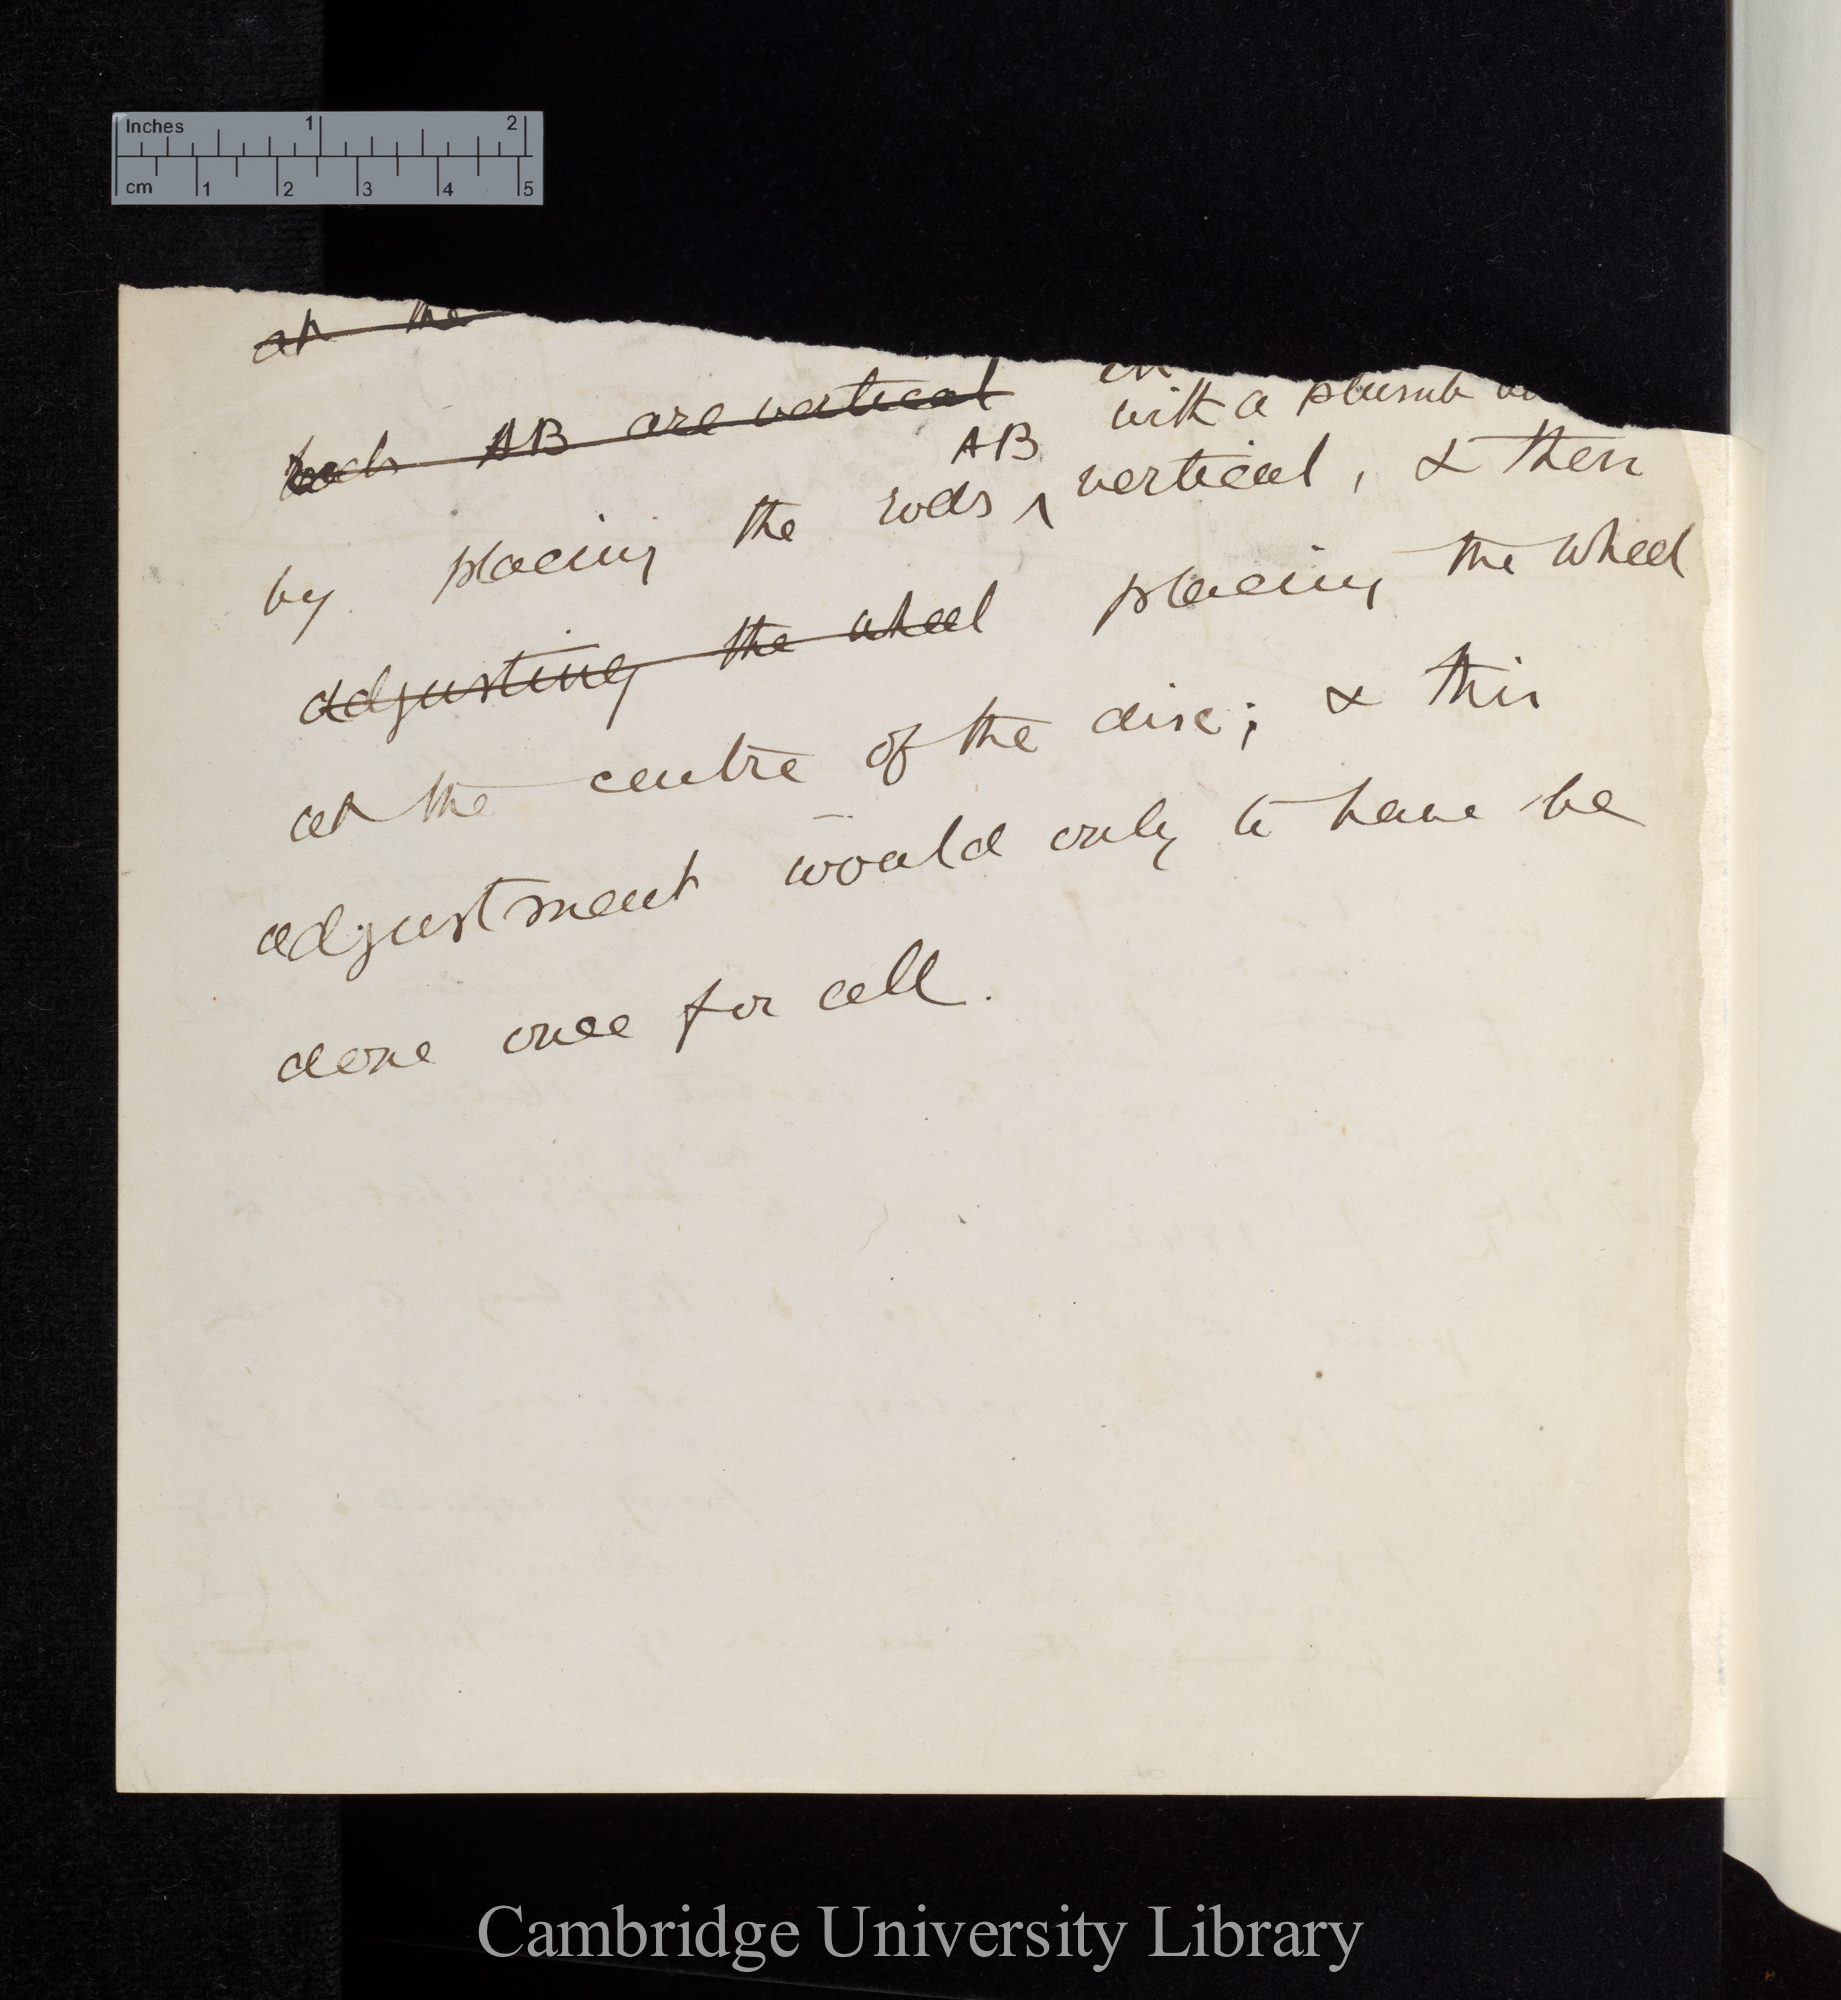 Inches 1 2
cm 1 2 3 4 5
at the
rods AB are vertical
with a plumb
AB
by placing the rods ‸ vertical, & then
adjusting the wheel placing the wheel
at the centre of the disc; & this
adjustment would only to have be
done once for all.
Cambridge University Library